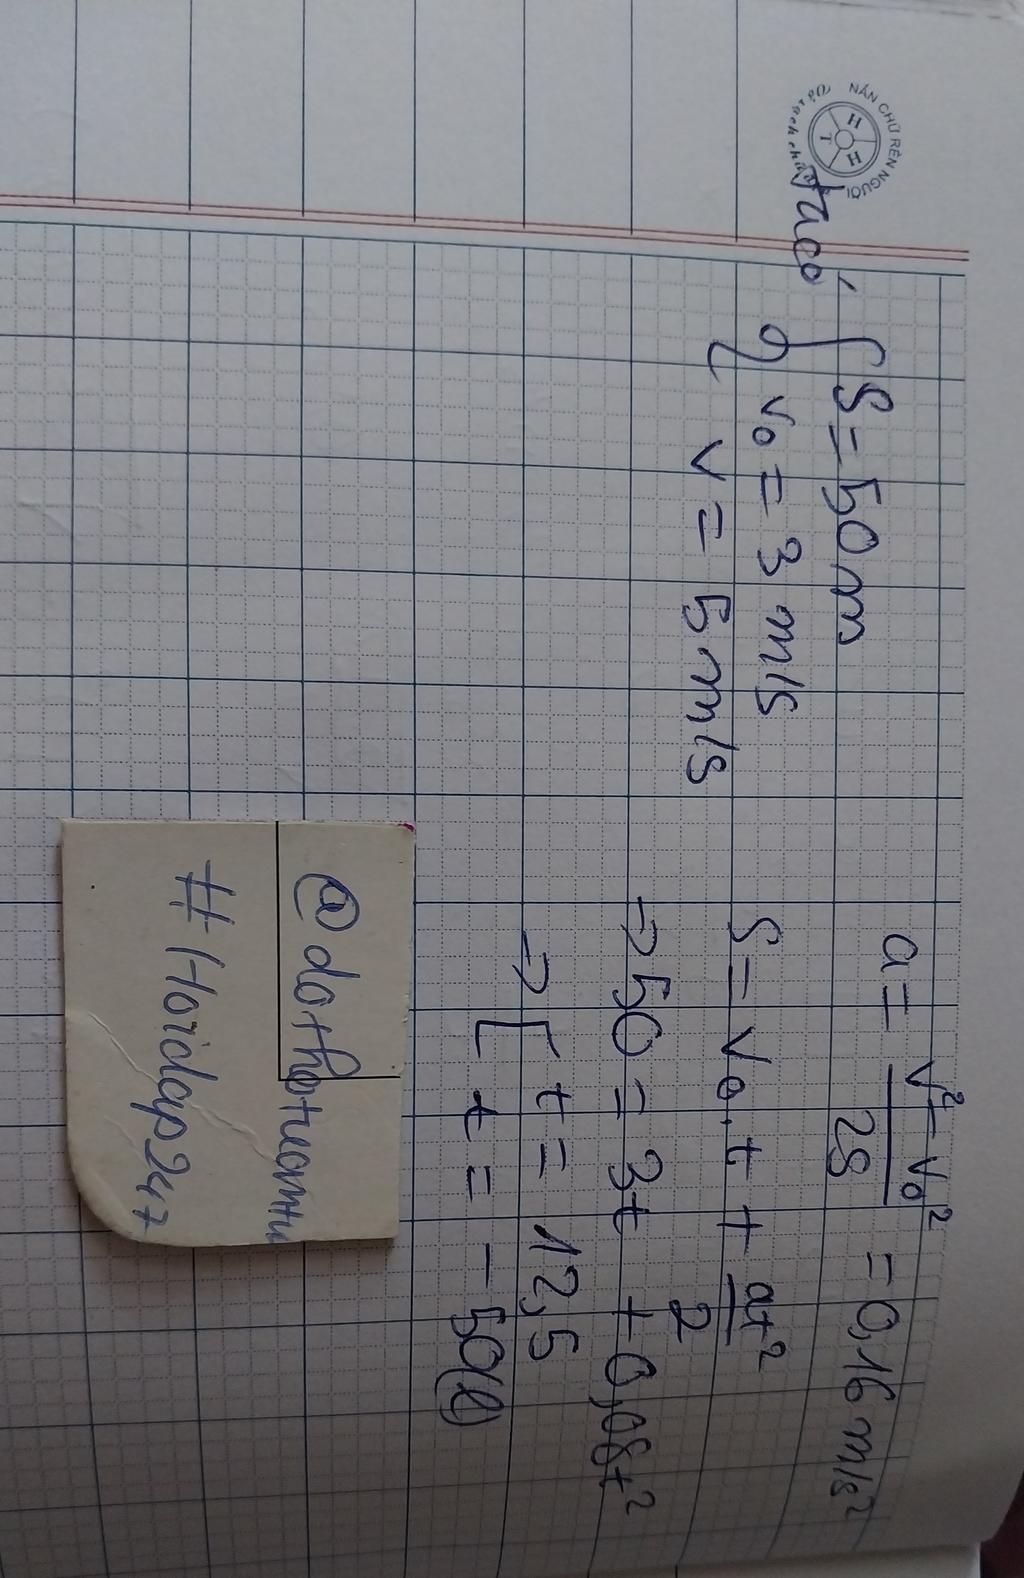 NẮN CHỮ RÈN NGƯỜI
H H T
ta có
S = 50m
v₀ = 3 m/s
v = 5 m/s
a = v² - v₀² / 2S = 0,16 m/s²
S = v₀.t + at² / 2
→ 50 = 3t + 0,08t²
→ [ t = 12,5
t = -50(l)
@dothotuantu
#Hoidap247